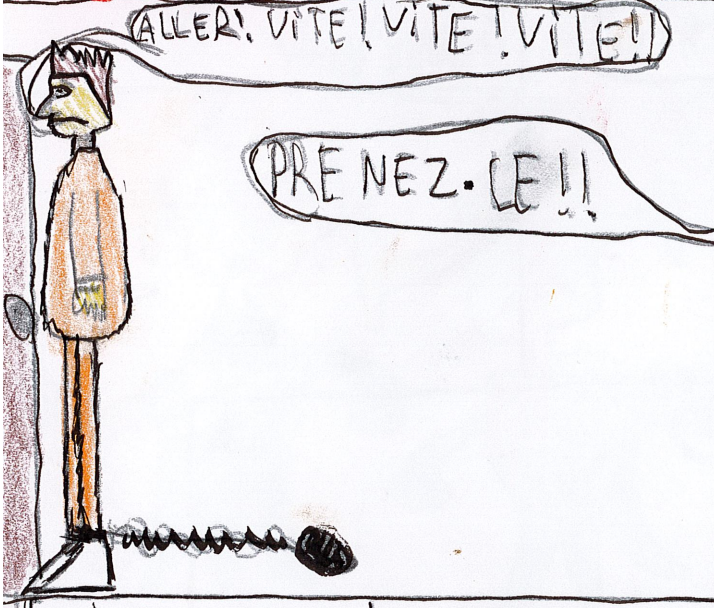 ALLER! VITE! VITE! VITE!!
PRENEZ-LE!!